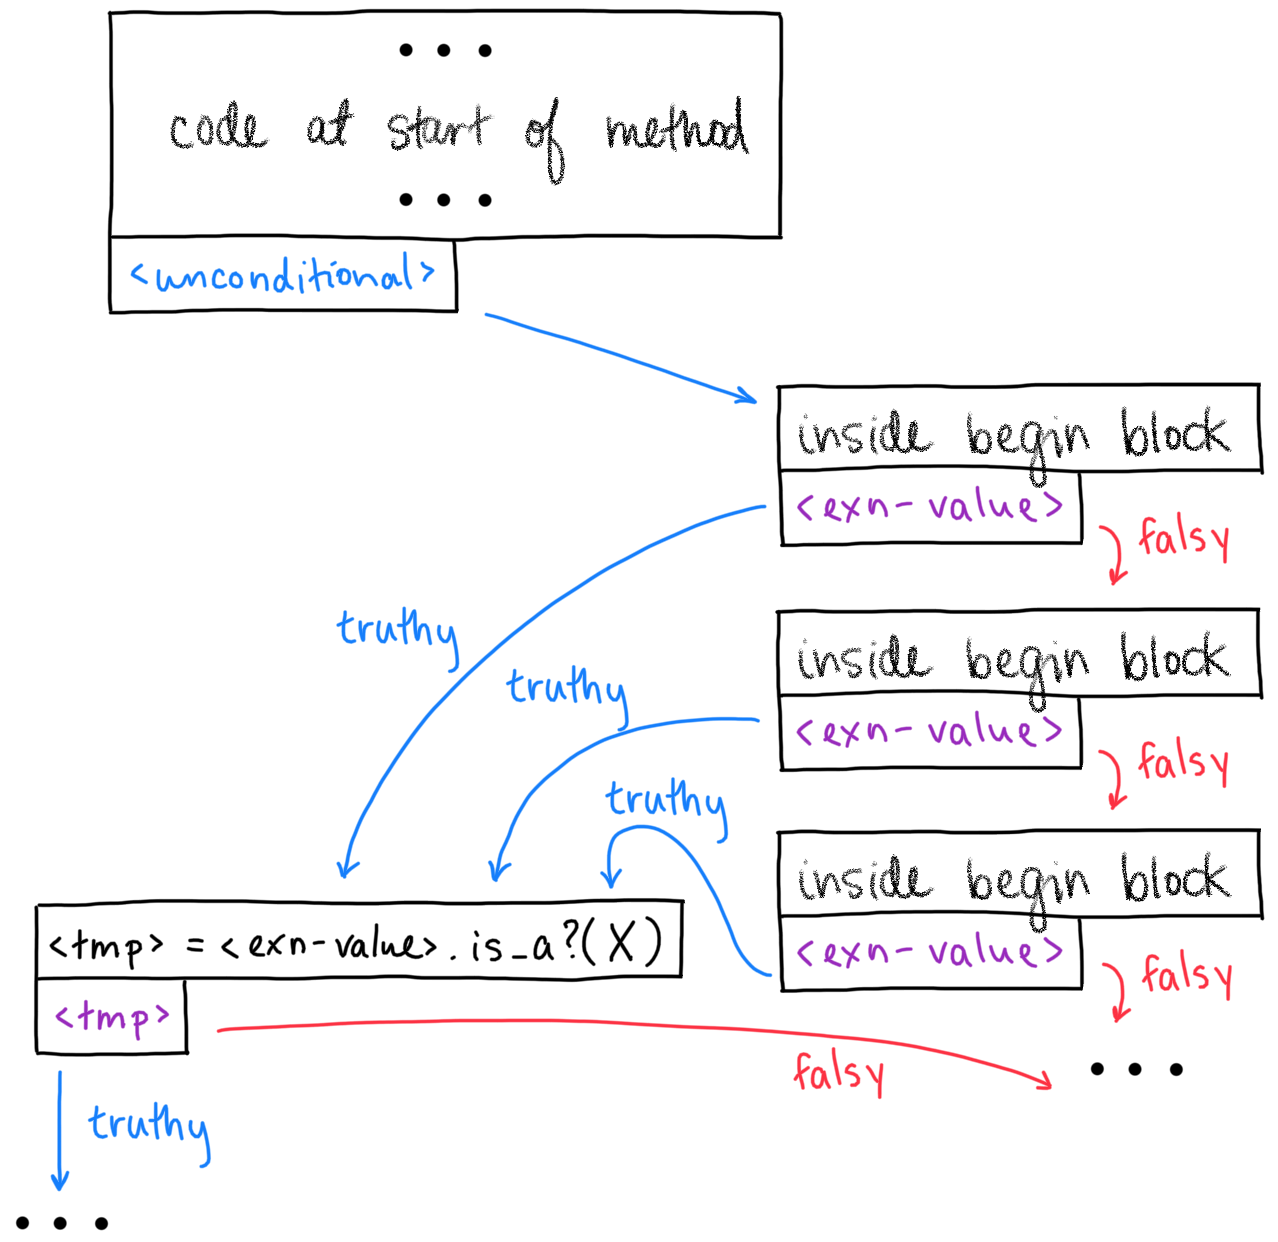 • • •
code at start of method
• • •
<unconditional>
inside begin block
<exn-value>
falsy
truthy
inside begin block
truthy
<exn-value>
falsy
truthy
inside begin block
<tmp> = <exn-value>.is_a?(X)
<exn-value>
falsy
<tmp>
falsy
• • •
truthy
• • •